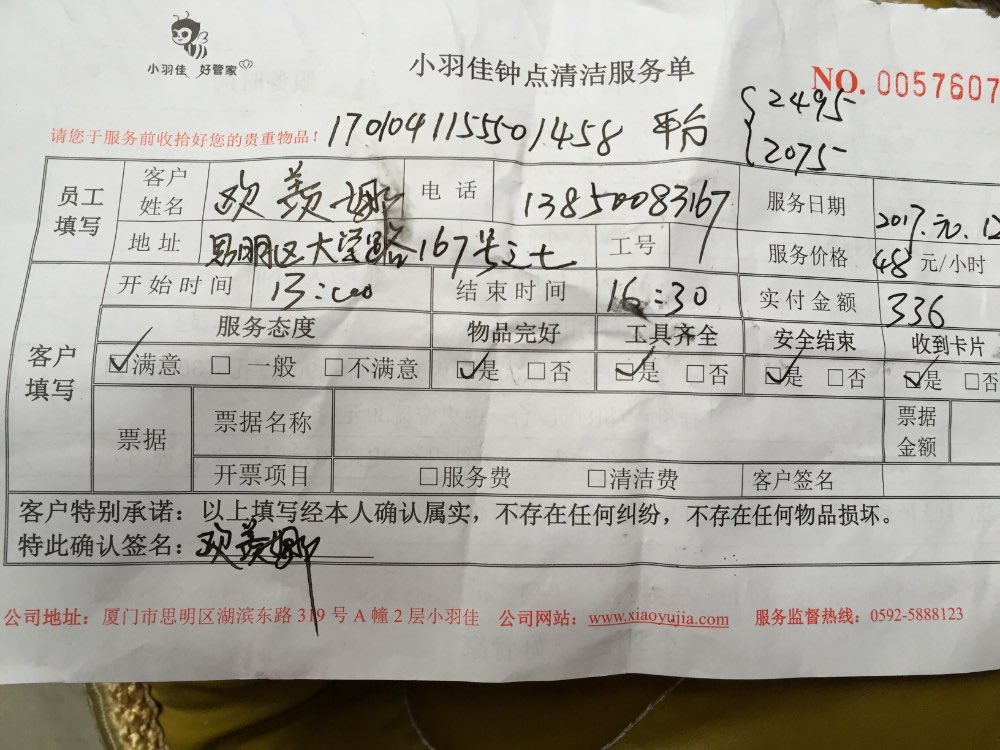 小羽佳 好管家
小羽佳钟点清洁服务单
NO. 0057607
请您于服务前收拾好您的贵重物品！ 1701041155501458 平台 2495
2075
员工填写 客户姓名 欧羡娜 电话 13850083167 服务日期 2017.元.12
地址 思明区大学路167号之七 工号 服务价格 48 元/小时
开始时间 13:00 结束时间 16:30 实付金额 336
客户填写 服务态度 物品完好 工具齐全 安全结束 收到卡片
☑满意 □一般 □不满意 ☑是 □否 ☑是 □否 ☑是 □否 ☑是 □否
票据 票据名称 票据金额
开票项目 □服务费 □清洁费 客户签名
客户特别承诺：以上填写经本人确认属实，不存在任何纠纷，不存在任何物品损坏。
特此确认签名：欧羡娜
公司地址：厦门市思明区湖滨东路319号A幢2层小羽佳 公司网站：www.xiaoyujia.com 服务监督热线：0592-5888123